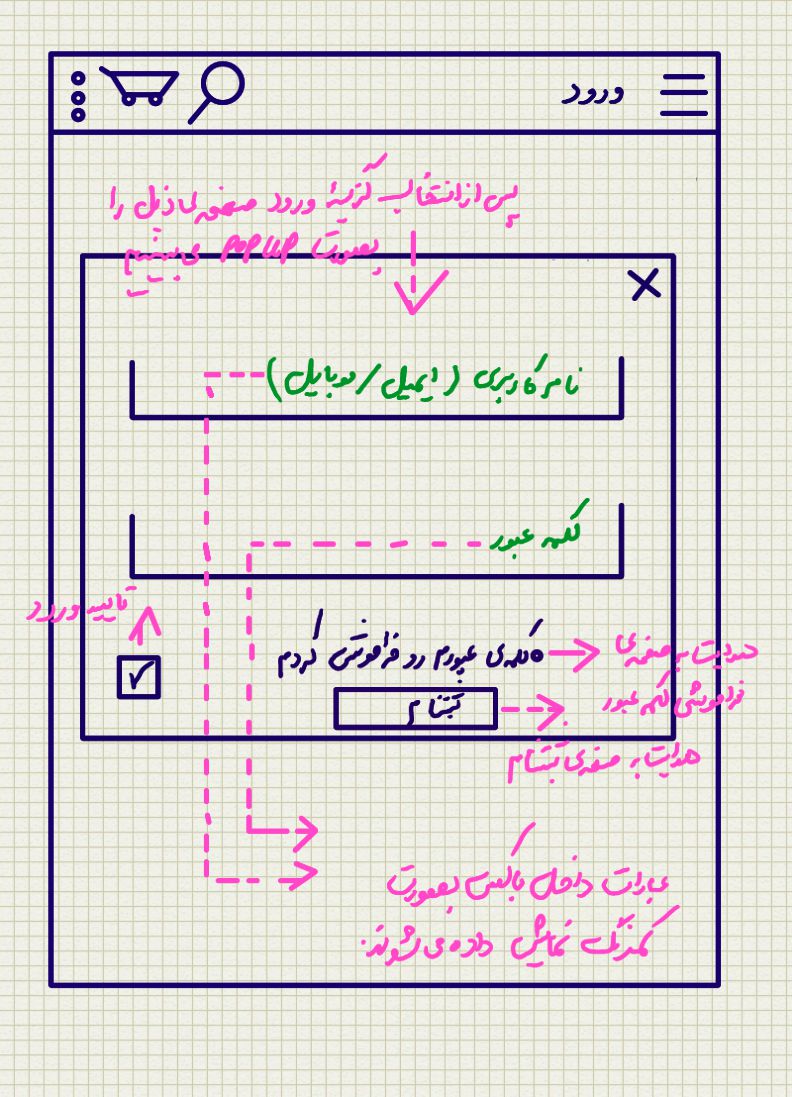 ورود
پس از انتخاب گزینهٔ ورود صفحه‌ی ذیل را
بصورت POPUP می‌بینیم
نام کاربری (ایمیل/موبایل)
کلمه عبور
تایید ورود
کلمه‌ی عبورم رو فراموش کردم
هدایت به صفحه‌ی
فراموشی کلمه عبور
ثبتنام
هدایت به صفحه‌ی ثبتنام
عبارات داخل باکس بصورت
کمرنگ نمایش داده می‌شوند.